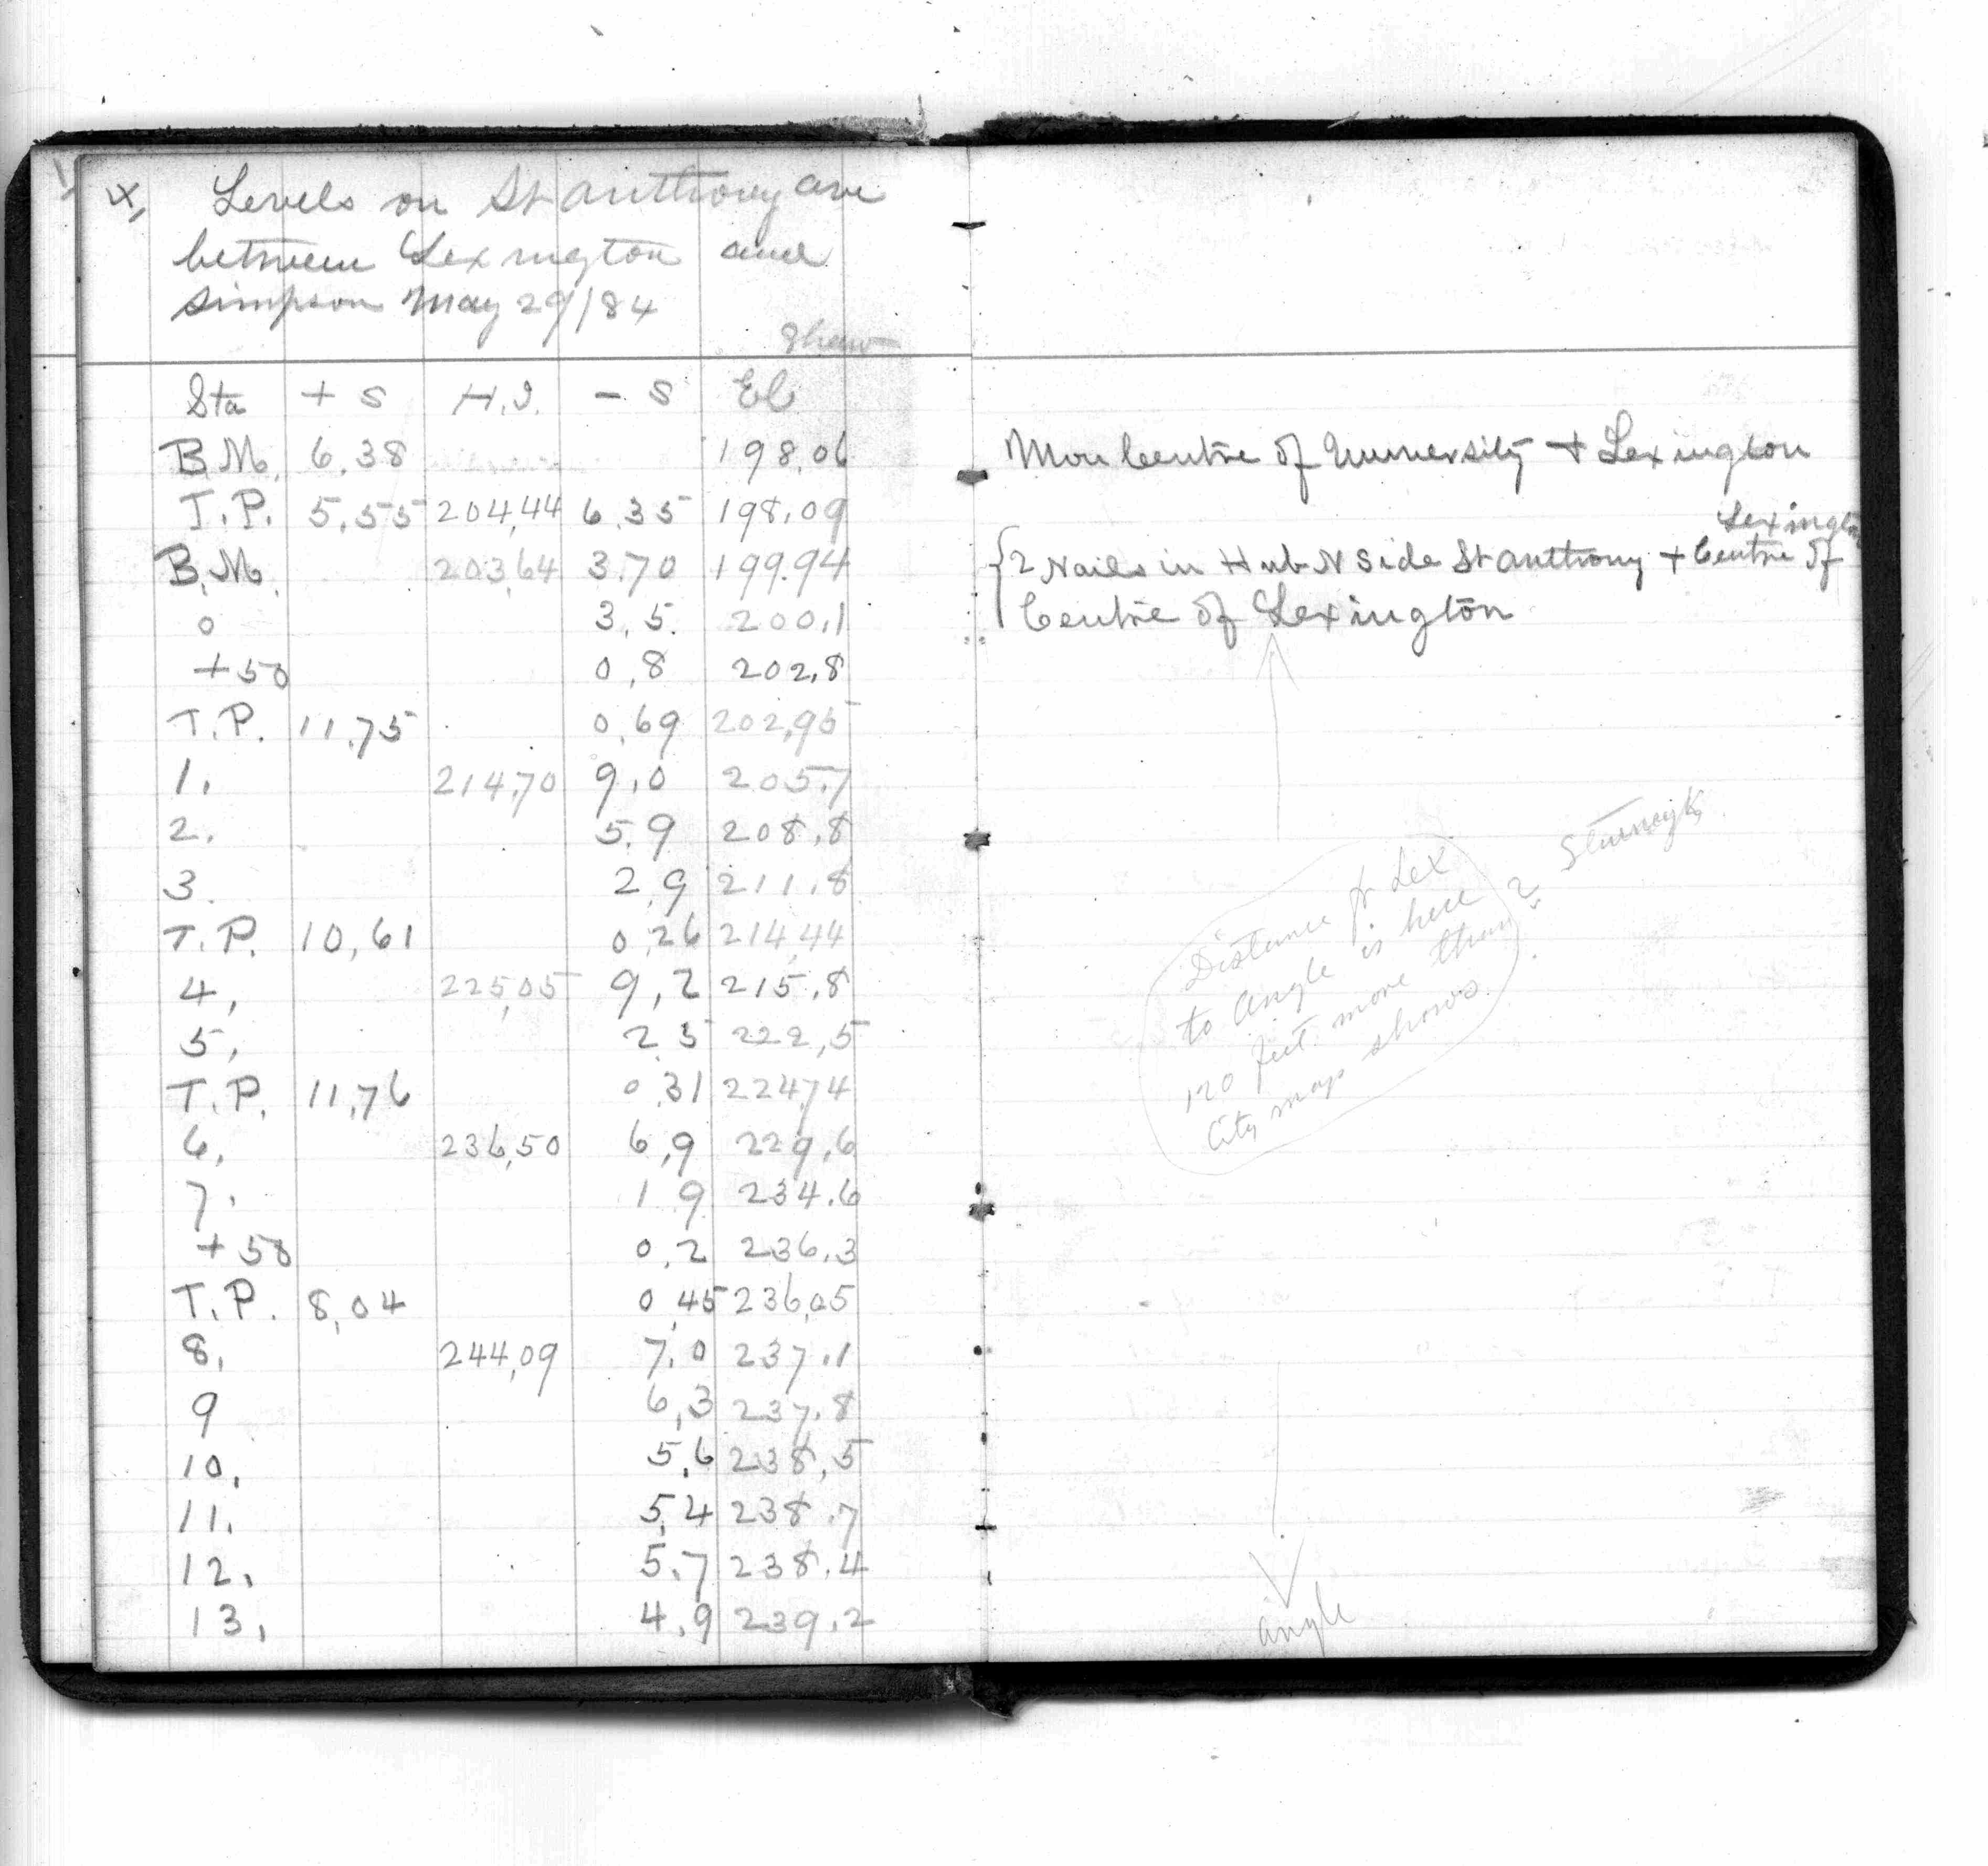 x, Levels on St anthony ave
between Lexington and
Simpson May 29/84
Shaw
Sta + S H.I. - S El
B.M. 6.38 198.06
T.P. 5.55 204.44 6.35 198.09
B.M. 203.64 3.70 199.94
0 3.5. 200.1
+50 0.8 202.8
T.P. 11.75 0.69 202.95
1. 214.70 9.0 205.7
2. 5.9 208.8
3. 2.9 211.8
T.P. 10.61 0.26 214.44
4, 225.05 9.2 215.8
5, 2.5 222.5
T.P. 11.76 0.31 224.74
6, 236.50 6.9 229.6
7, 1.9 234.6
+50 0.2 236.3
T.P. 8.04 0.45 236.05
8, 244.09 7.0 237.1
9 6.3 237.8
10, 5.6 238.5
11. 5.4 238.7
12, 5.7 238.4
13, 4.9 239.2
Mon Centre of University + Lexington
Lexington
2 Nails in Hub N Side St anthony + Centre of
Centre of Lexington
Distance fr Lex
to angle is here
120 feet more than
City map shows.
angle